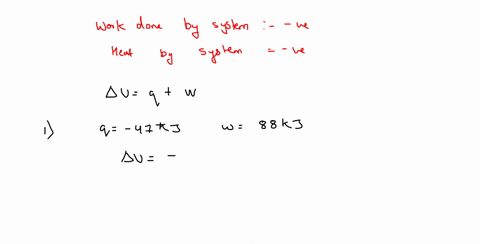 Work done by system :- -ve
Heat by system = -ve
ΔU = q + w
1) q = -47 KJ w = 88 KJ
ΔU = -